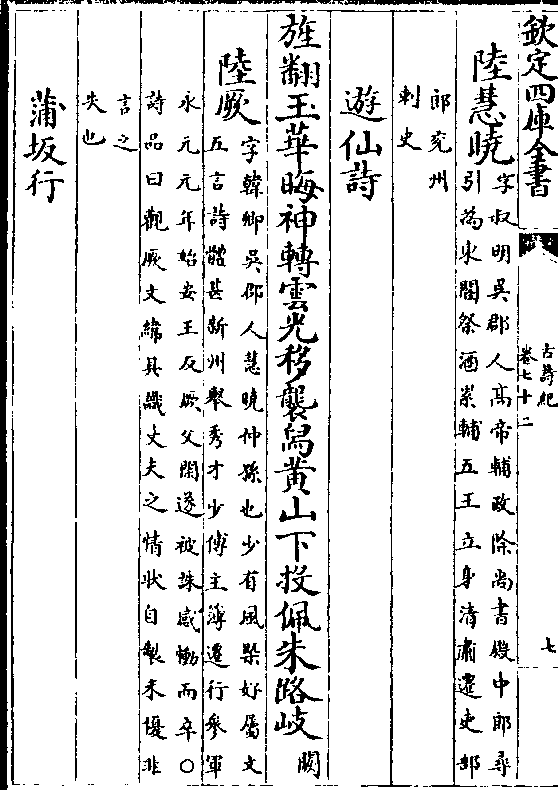 欽定四庫全書
古詩紀
卷七十二
七
陸慧曉
字叔明吳郡人高帝輔政除尚書殿中郎尋
引為東閣祭酒累輔五王立身清肅遷吏部
郎兖州
刺史
遊仙詩
旌翻玉華晦神轉雲光移襲舄黄山下投佩朱路岐
闕
陸厥
字韓卿吳郡人慧曉仲孫也少有風槩好屬文
五言詩體甚新州舉秀才少傅主簿遷行參軍
永元元年始安王反厥父閑遂被誅感慟而卒〇
詩品曰觀厥文緯具識丈夫之情狀自製未優非
言之
失也
蒲坂行